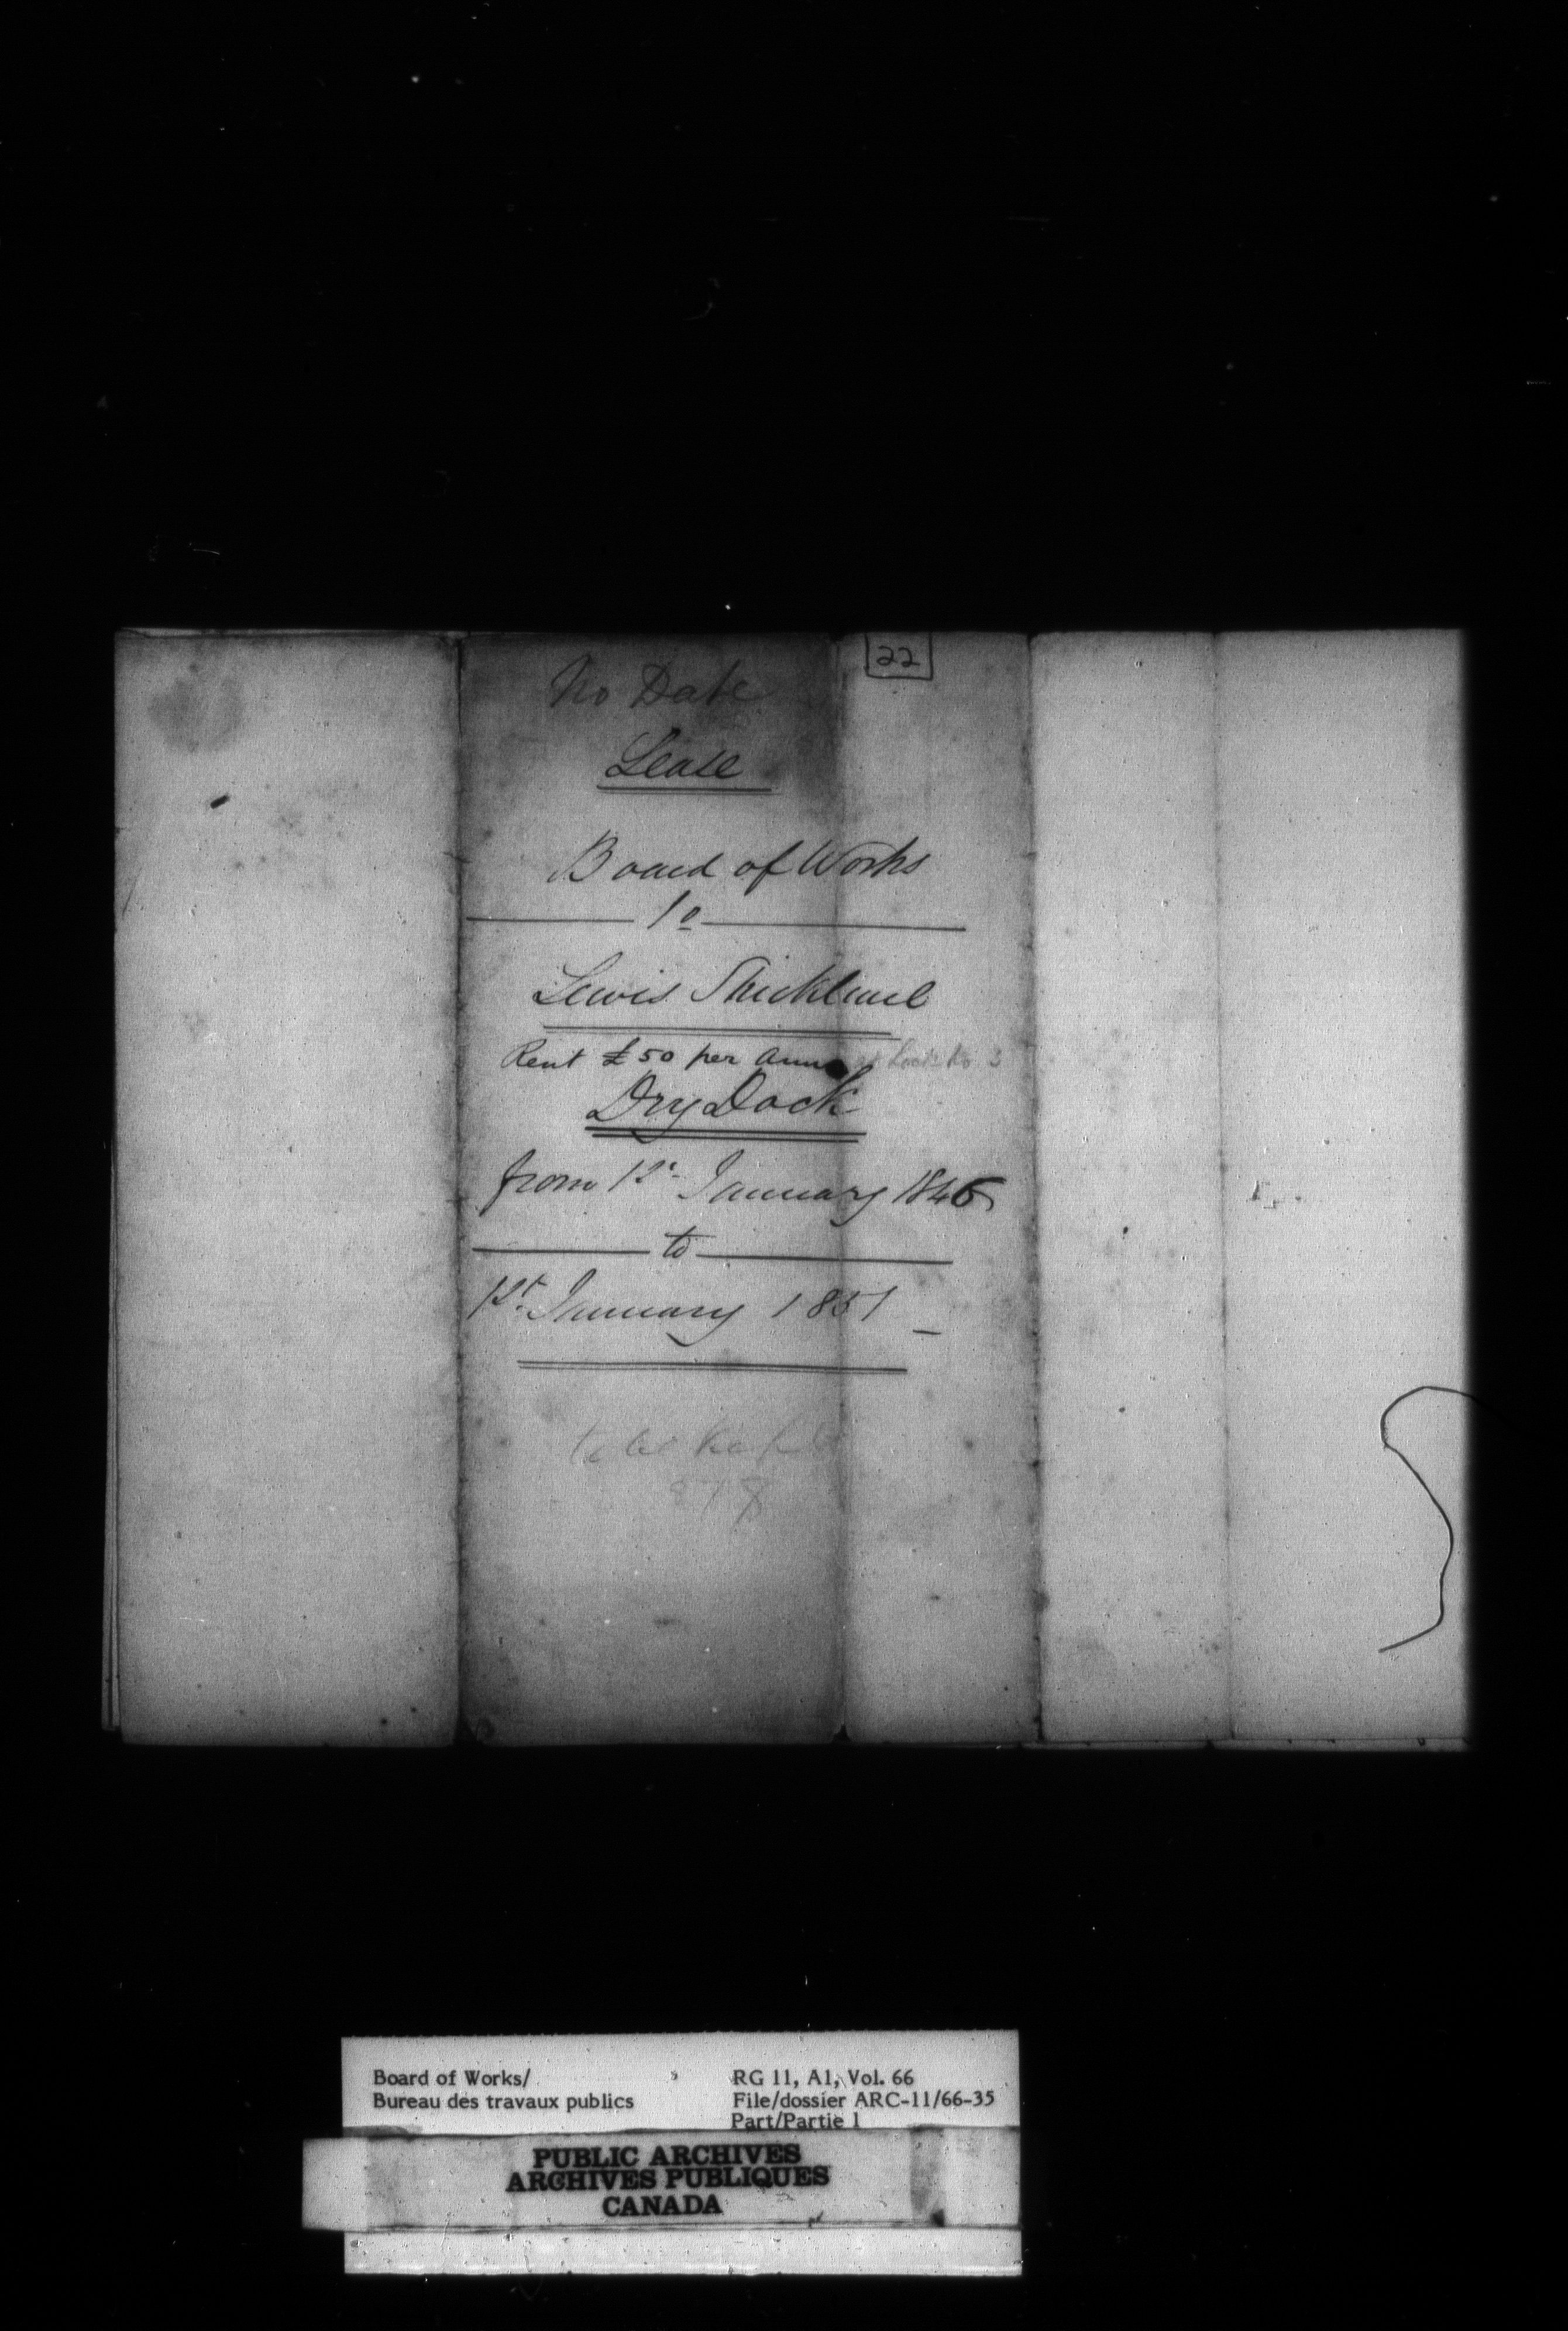 22
No Date
Lease
Board of Works
to
Lewis
Rent £50 per Ann at Lock No 3
Dry Dock
from 1st January 1846
to
1st January 1851
to be
Board of Works/
Bureau des travaux publics
RG 11, A1, Vol. 66
File/dossier ARC-11/66-35
Part/Partie 1
PUBLIC ARCHIVES
ARCHIVES PUBLIQUES
CANADA